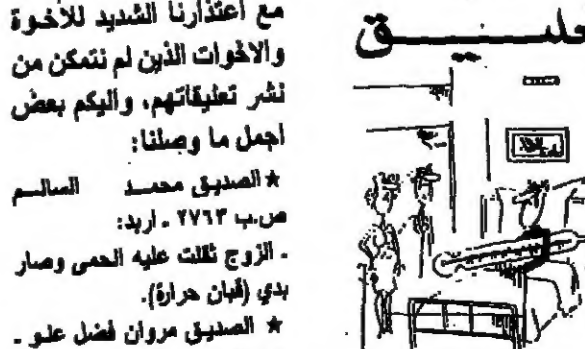 تعليق
مع اعتذارنا الشديد للأخوة
والاخوات الذين لم نتمكن من
نشر تعليقاتهم، واليكم بعض
اجمل ما وصلنا:
★ الصديق محمد السالم
ص.ب ٢٧٦٣ ـ اربد:
ـ الزوج ثقلت عليه الحمى وصار
بدي (قبان حرارة).
★ الصديق مروان فضل علو ـ